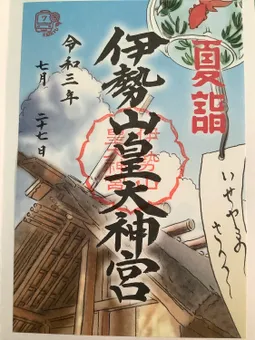 夏詣
伊勢山皇大神宮
令和三年
七月二十七日
いせやま